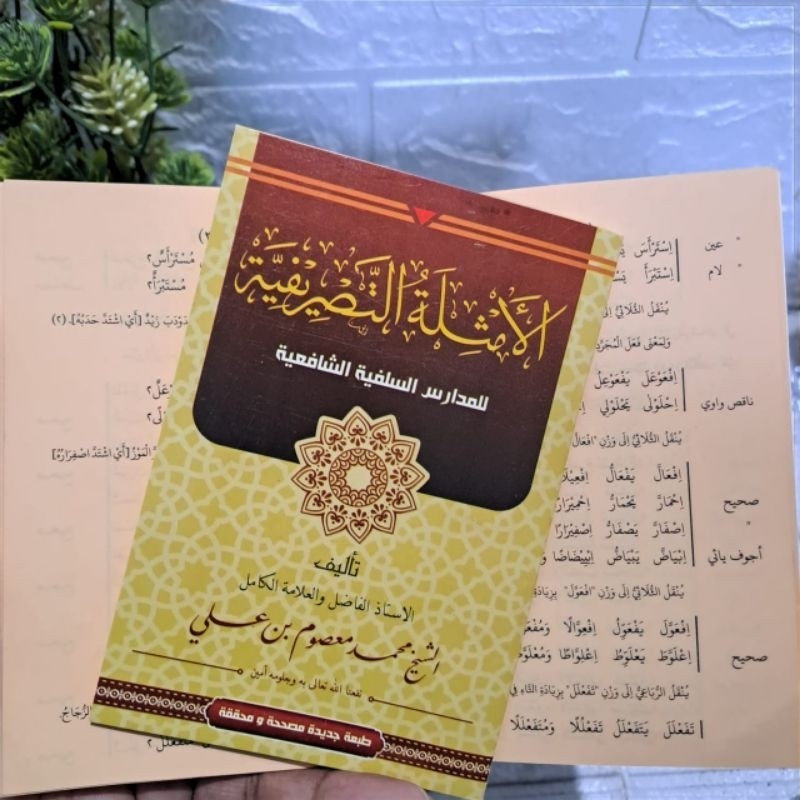 الأَمْثِلَةُ التَّصْرِيفِيَّة
للمدارس السلفية الشافعية
تأليف
الاستاذ الفاضل والعلامة الكامل
الشيخ محمد معصوم بن علي
نفعنا الله تعالى به وبعلومه آمين
طبعة جديدة مصححة و محققة
عين
اِسْتَرْأَسَ
لام
اِسْتَبْرَأَ
يُنْقَلُ الثُّلَاثِيُّ
وَلِمَعْنَى فَعَلَ الْمُجَرَّدِ
اِفْعَوْعَلَ يَفْعَوْعِلُ
ناقص واوي
اِحْلَوْلَى يَحْلَوْلِي
يُنْقَلُ الثُّلَاثِيُّ اِلَى وَزْنِ
اِفْعَالَّ يَفْعَالُّ
صحيح
اِحْمَارَّ يَحْمَارُّ اِحْمِيْرَارًا
" اِصْفَارَّ يَصْفَارُّ اِصْفِيْرَارًا
أجوف يائي
اِبْيَاضَّ يَبْيَاضُّ اِبْيِيْضَاضًا
يُنْقَلُ الثُّلَاثِيُّ اِلَى وَزْنِ "اِفْعَوَّلَ" بِزِيَادَةِ
اِفْعَوَّلَ يَفْعَوِّلُ اِفْعِوَّالًا
صحيح
اِعْلَوَّطَ يَعْلَوِّطُ اِعْلِوَّاطًا
يُنْقَلُ الرُّبَاعِيُّ اِلَى وَزْنِ "تَفَعْلَلَ" بِزِيَادَةِ التَّاءِ فِي
تَفَعْلَلَ يَتَفَعْلَلُ تَفَعْلُلًا وَمُتَفَعْلَلًا
مُسْتَرْأَسٌ ٢
مُسْتَبْرَأٌ ٢
زَيْدٌ [أَيْ اشْتَدَّ حَدَبُهُ]. (٢)
الْمَوْزُ [أَيْ اشْتَدَّ اصْفِرَارُهُ]
الزُّجَاجُ.